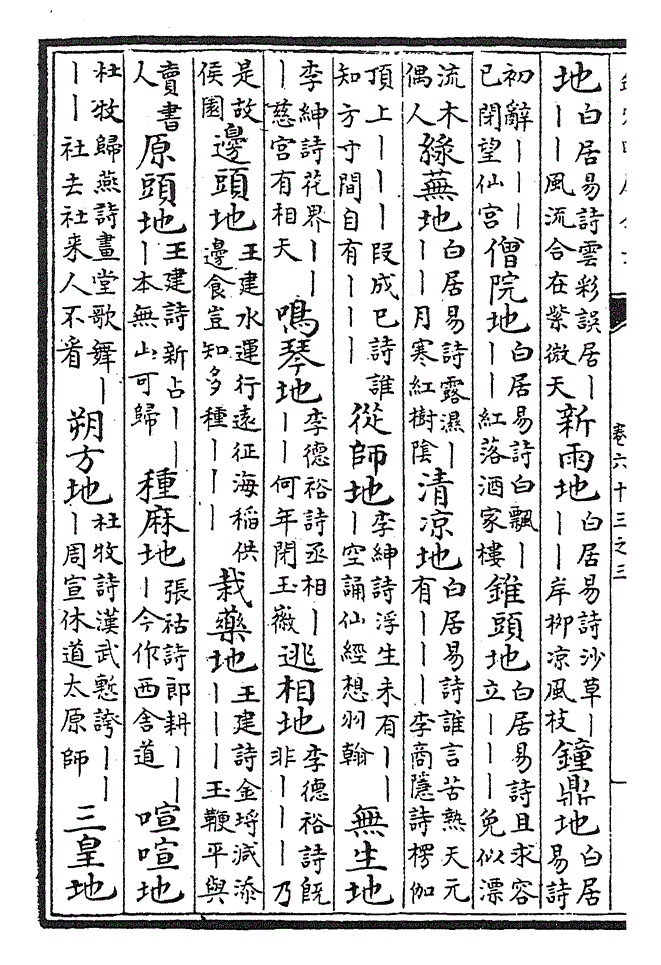 卷六十三之三
地白居易詩雲彩誤居丨丨丨風流合在紫微天新雨地白居易詩沙草丨丨丨岸柳凉風枝鐘鼎地白居易詩
初辭丨丨丨已閉望仙宮僧院地白居易詩白飄丨丨丨紅落酒家樓錐頭地白居易詩且求容立丨丨丨免似漂
流木偶人綠蕪地白居易詩露濕丨丨丨月寒紅樹陰清凉地白居易詩誰言苦熱天元有丨丨丨李商隱詩楞伽
頂上丨丨丨段成已詩誰知方寸間自有丨丨丨從師地李紳詩浮生未有丨丨丨空誦仙經想羽翰無生地
李紳詩花界丨丨丨慈宮有相天鳴琴地李德裕詩丞相丨丨丨何年閉玉徽逃相地李德裕詩既非丨丨丨乃
是故侯園邊頭地王建水運行遠征海稻供邊食豈知多種丨丨丨栽藥地王建詩金埒減添丨丨丨玉鞭平與
賣書人原頭地王建詩新占丨丨丨本無山可歸種麻地張祜詩郎耕丨丨丨今作西舍道喧喧地
杜牧歸燕詩畫堂歌舞丨丨丨社去社来人不看朔方地杜牧詩漢武慙誇丨丨丨周宣休道太原師三皇地